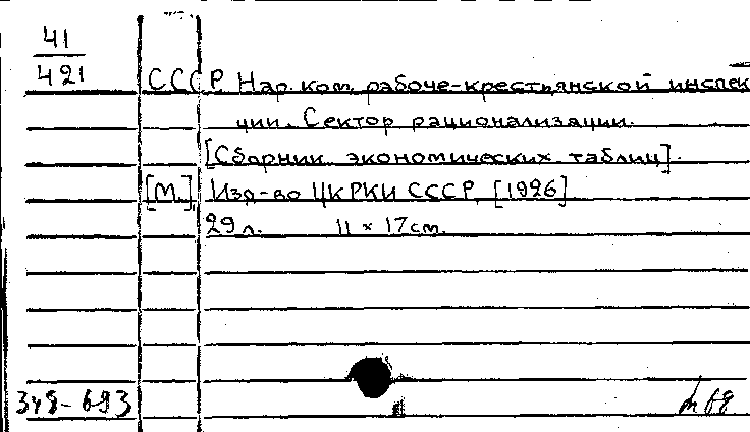 41
421
СССР Нар. ком. рабоче-крестьянской инспек
ции. Сектор рационализации.
[Сборник экономических таблиц].
[М.], Изд-во ЦК РКИ СССР, [1926]
29 л. 11 × 17 см.
348-693
68